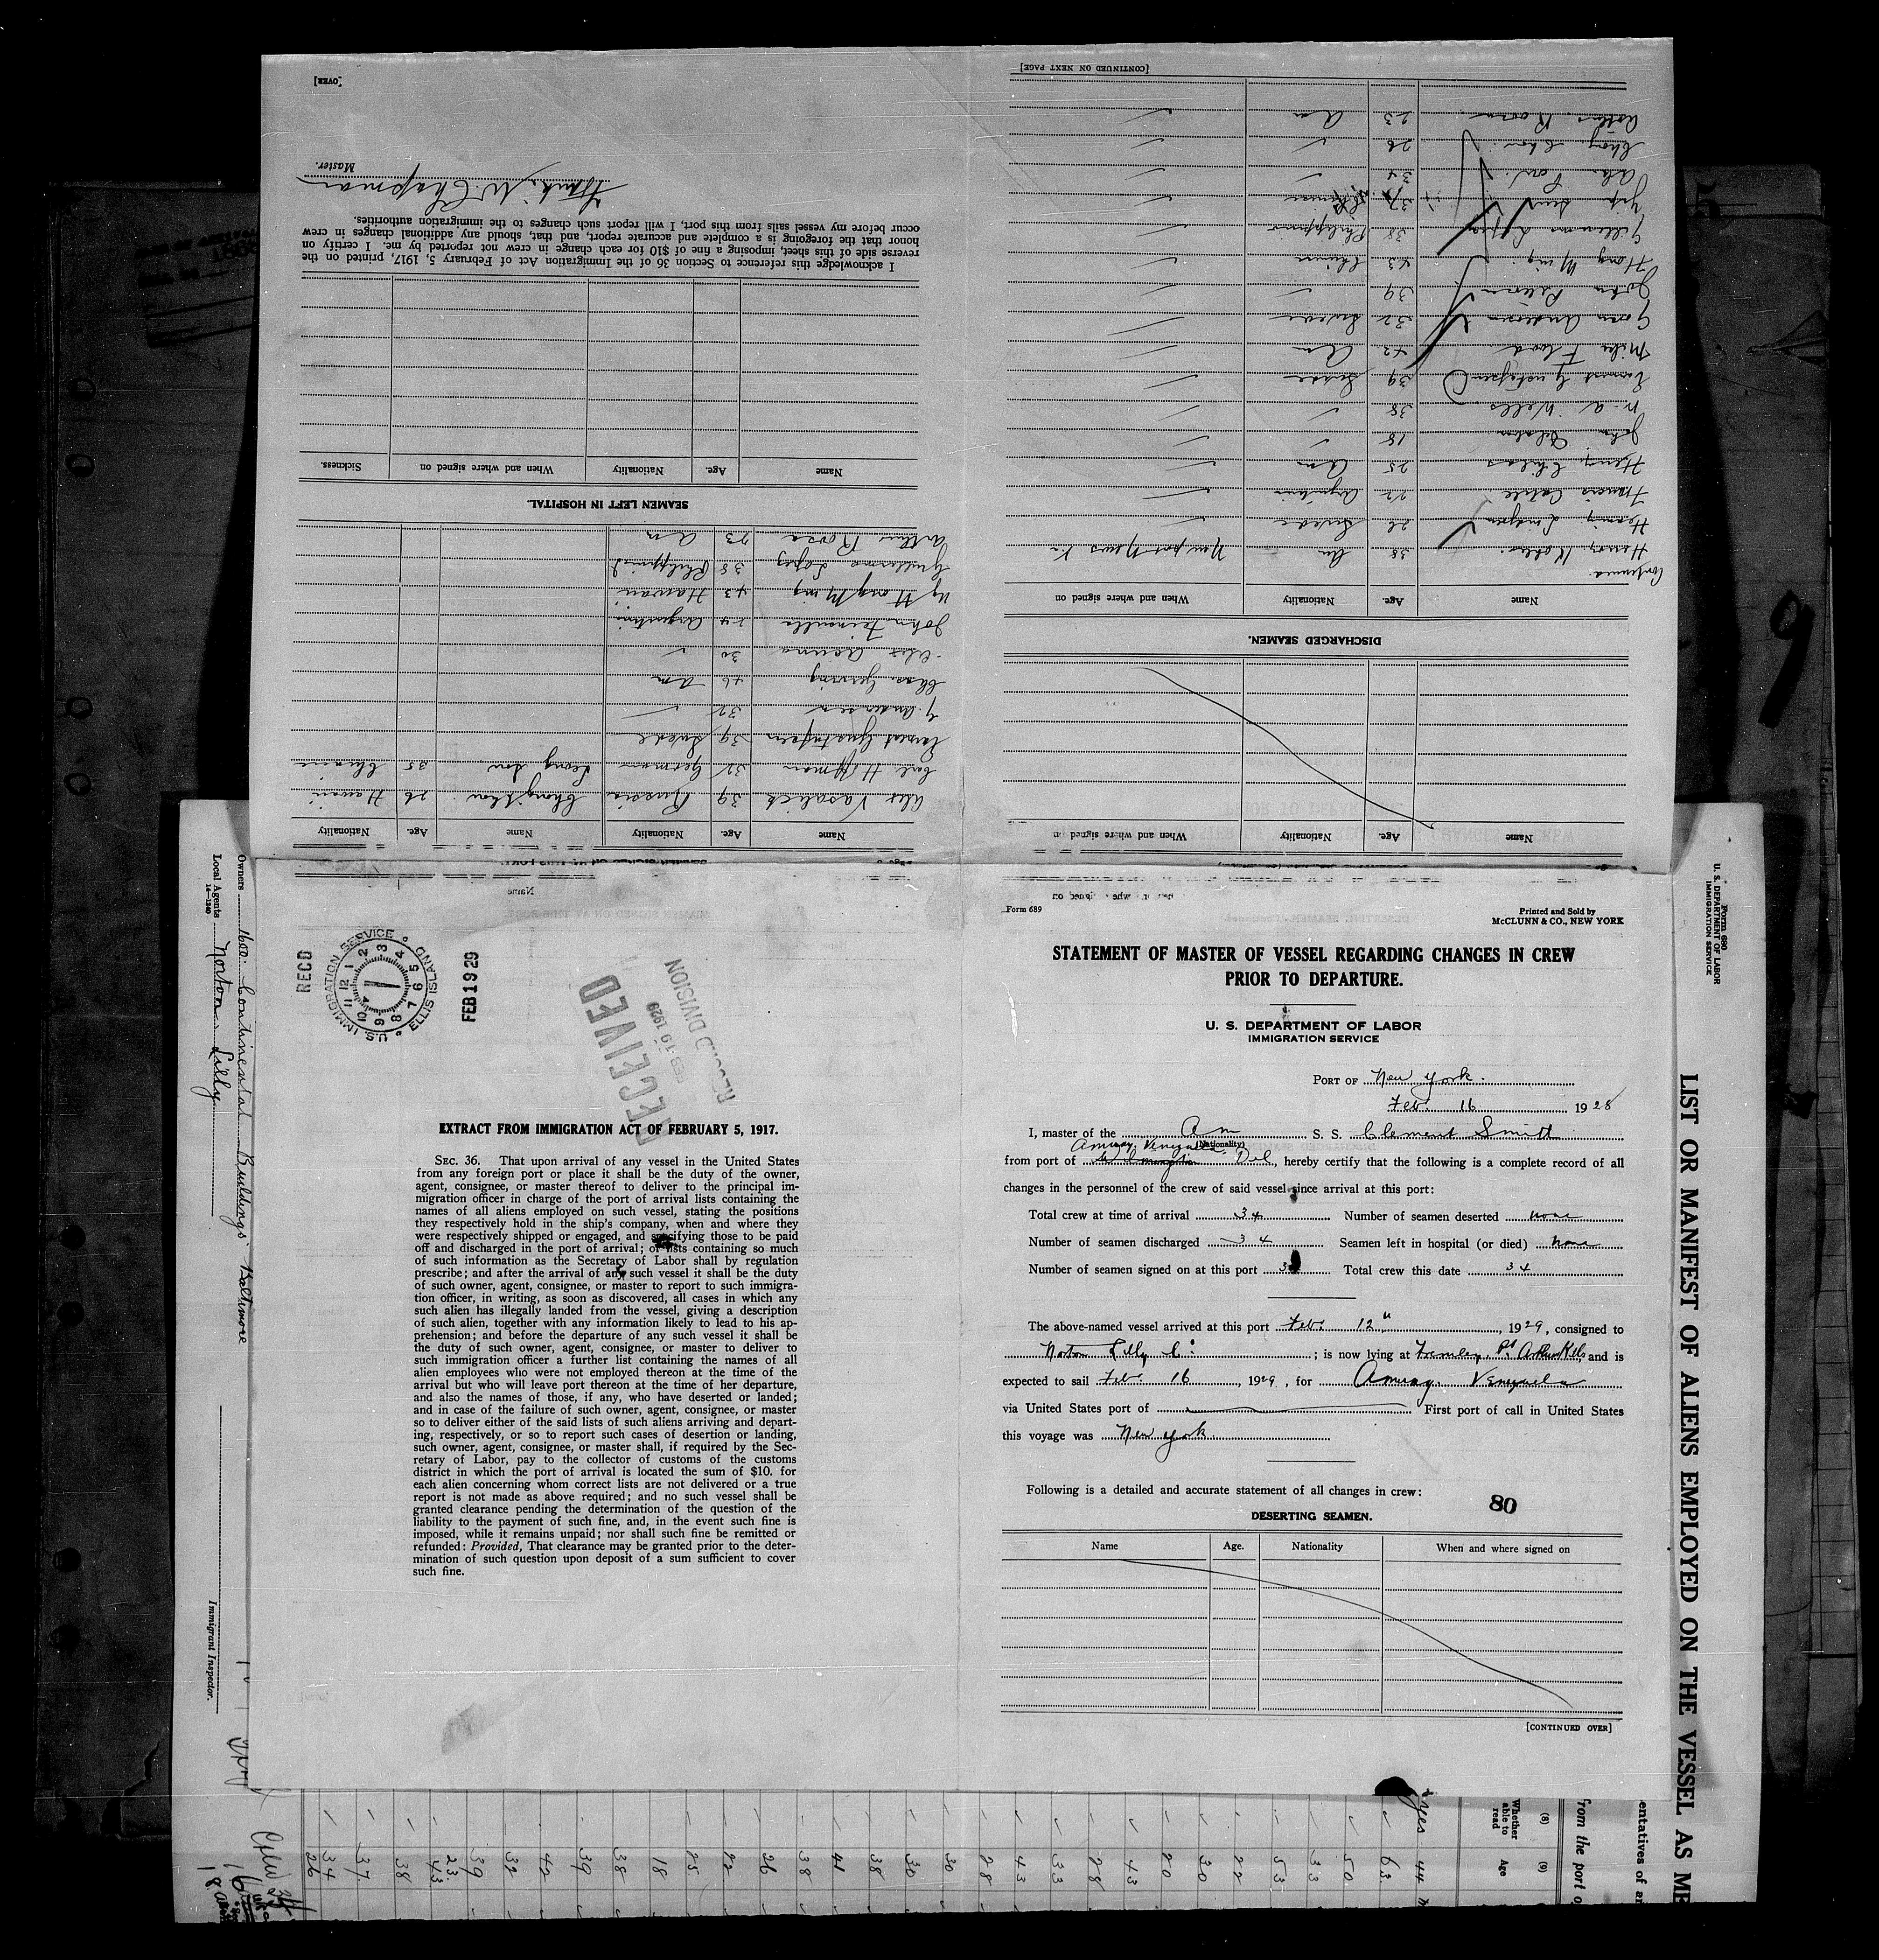 Form 689
Printed and Sold by
McCLUNN & CO., NEW YORK
STATEMENT OF MASTER OF VESSEL REGARDING CHANGES IN CREW
PRIOR TO DEPARTURE.
U. S. DEPARTMENT OF LABOR
IMMIGRATION SERVICE
PORT OF New York.
Feb. 16 1928
I, master of the Am S. S. Clement Smith
(Nationality)
from port of Wilmington Del, hereby certify that the following is a complete record of all
changes in the personnel of the crew of said vessel since arrival at this port:
Total crew at time of arrival 34 Number of seamen deserted none
Number of seamen discharged 34 Seamen left in hospital (or died) None
Number of seamen signed on at this port Total crew this date 34
The above-named vessel arrived at this port Feb. 12", 1929, consigned to
Norton Lilly Co ; is now lying at and is
expected to sail Feb. 16, 1929, for Amuay Venezuela
via United States port of First port of call in United States
this voyage was New York.
Following is a detailed and accurate statement of all changes in crew:
80
DESERTING SEAMEN.
Name Age. Nationality When and where signed on
[CONTINUED OVER]
RECD
U.S. IMMIGRATION SERVICE ELLIS ISLAND
FEB 19 29
RECEIVED
FEB 19 1929
RECORD DIVISION
EXTRACT FROM IMMIGRATION ACT OF FEBRUARY 5, 1917.
SEC. 36. That upon arrival of any vessel in the United States
from any foreign port or place it shall be the duty of the owner,
agent, consignee, or master thereof to deliver to the principal im-
migration officer in charge of the port of arrival lists containing the
names of all aliens employed on such vessel, stating the positions
they respectively hold in the ship's company, when and where they
were respectively shipped or engaged, and specifying those to be paid
off and discharged in the port of arrival; or lists containing so much
of such information as the Secretary of Labor shall by regulation
prescribe; and after the arrival of any such vessel it shall be the duty
of such owner, agent, consignee, or master to report to such immigra-
tion officer, in writing, as soon as discovered, all cases in which any
such alien has illegally landed from the vessel, giving a description
of such alien, together with any information likely to lead to his ap-
prehension; and before the departure of any such vessel it shall be
the duty of such owner, agent, consignee, or master to deliver to
such immigration officer a further list containing the names of all
alien employees who were not employed thereon at the time of the
arrival but who will leave port thereon at the time of her departure,
and also the names of those, if any, who have deserted or landed;
and in case of the failure of such owner, agent, consignee, or master
so to deliver either of the said lists of such aliens arriving and depart-
ing, respectively, or so to report such cases of desertion or landing,
such owner, agent, consignee, or master shall, if required by the Sec-
retary of Labor, pay to the collector of customs of the customs
district in which the port of arrival is located the sum of $10. for
each alien concerning whom correct lists are not delivered or a true
report is not made as above required; and no such vessel shall be
granted clearance pending the determination of the question of the
liability to the payment of such fine, and, in the event such fine is
imposed, while it remains unpaid; nor shall such fine be remitted or
refunded: Provided, That clearance may be granted prior to the deter-
mination of such question upon deposit of a sum sufficient to cover
such fine.
Name Age. Nationality When and where signed on
DISCHARGED SEAMEN.
Name Age. Nationality When and where signed on
Continued
Henry 38 Am Newport News Va
Henry 26 Swede
Francis 22 Argentina
Henry Childs 25 Am
John 18
M. A. Wells 38
Ernest Gustafsen 39 Swede
Mike Flood 42 Am
Anderson 32 Swede
John 39
Hong Ming 43 China
Guillermo Lopez 38 Philippine
37
34
26
Rosse 23 Am
[CONTINUED ON NEXT PAGE]
Name Age. Nationality Name Age. Nationality
Alex Vasalick 39 Russia 26 Hawaii
Carl Hoffman 32 German Leong Son 35 Chinese
Ernest Gustafsen 39 Swede
G. Andersen 32
Chas. 46 Am
Alex 30
John 24 Argentina
Ng Hong Ming 43 Hawaii
Guillermo Lopez 38 Philippine
Rosse 23 Am
SEAMEN LEFT IN HOSPITAL.
Name Age. Nationality When and where signed on Sickness.
I acknowledge this reference to Section 36 of the Immigration Act of February 5, 1917, printed on the
reverse side of this sheet, imposing a fine of $10 for each change in crew not reported by me. I certify on
honor that the foregoing is a complete and accurate report, and that, should any additional changes in crew
occur before my vessel sails from this port, I will report such changes to the immigration authorities.
W. Chapman
Master.
[OVER]
Form 680
U. S. DEPARTMENT OF LABOR
IMMIGRATION SERVICE
LIST OR MANIFEST OF ALIENS EMPLOYED ON THE VESSEL AS ME
from the port o
entatives of a
(8) (9)
Whether able to read Age
yes 44
63
50
33
53
22
30
20
43
28
33
43
28
30
30
38
41
38
26
22
25
18
38
39
42
32
39
23
43
38
37
34
26
Owners 1600 Continental Buildings Baltimore
Local Agents Norton Lilly
14—1240
Immigrant Inspector.
9